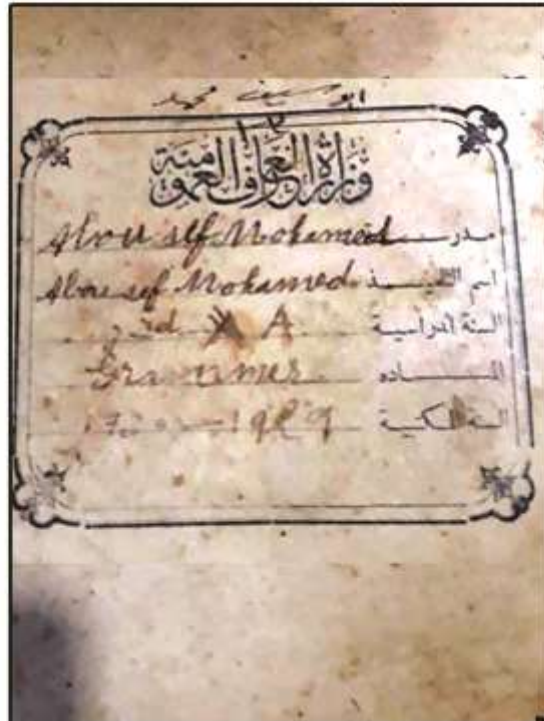 ابو سيف محمد
١٣
وزارة المعارف العمومية
مدرسة Abou sef Mohamed
اسم التلميذ Abou sef Mohamed
السنة الدراسية 3d A
المادة Grammer
السنة المكتبية 1949